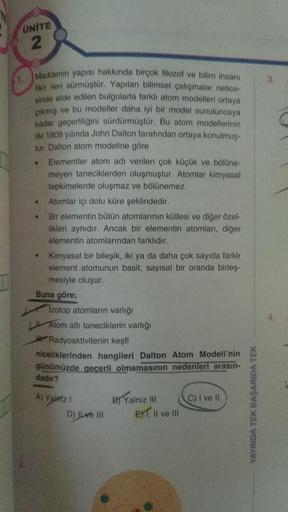 ÜNİTE
2
1.
Maddenin yapısı hakkında birçok filozof ve bilim insanı
fikir ileri sürmüştür. Yapılan bilimsel çalışmalar netice-
sinde elde edilen bulgularla farklı atom modelleri ortaya
çıkmış ve bu modeller daha iyi bir model sunuluncaya
kadar geçerliliğini sürdürmüştür. Bu atom modellerinin
ilki 1808 yılında John Dalton tarafından ortaya konulmuş-
tur. Dalton atom modeline göre
• Elementler atom adı verilen çok küçük ve bölüne-
meyen taneciklerden oluşmuştur. Atomlar kimyasal
tepkimelerde oluşmaz ve bölünemez.
• Atomlar içi dolu küre şeklindedir.
• Bir elementin bütün atomlarının kütlesi ve diğer özel-
likleri aynıdır. Ancak bir elementin atomları, diğer
elementin atomlarından farklıdır.
• Kimyasal bir bileşik, iki ya da daha çok sayıda farklı
element atomunun basit, sayısal bir oranda birleş-
mesiyle oluşur.
Buna göre;
I. İzotop atomların varlığı
II. Atom altı taneciklerin varlığı
III. Radyoaktivitenin keşfi
niceliklerinden hangileri Dalton Atom Modeli'nin
günümüzde geçerli olmamasının nedenleri arasın-
dadır?
A) Yalnız I B) Yalnız III C) I ve II
D) II ve III E) I, II ve III
2.
3.
4.
YAYINDA TEK BAŞARIDA TEK